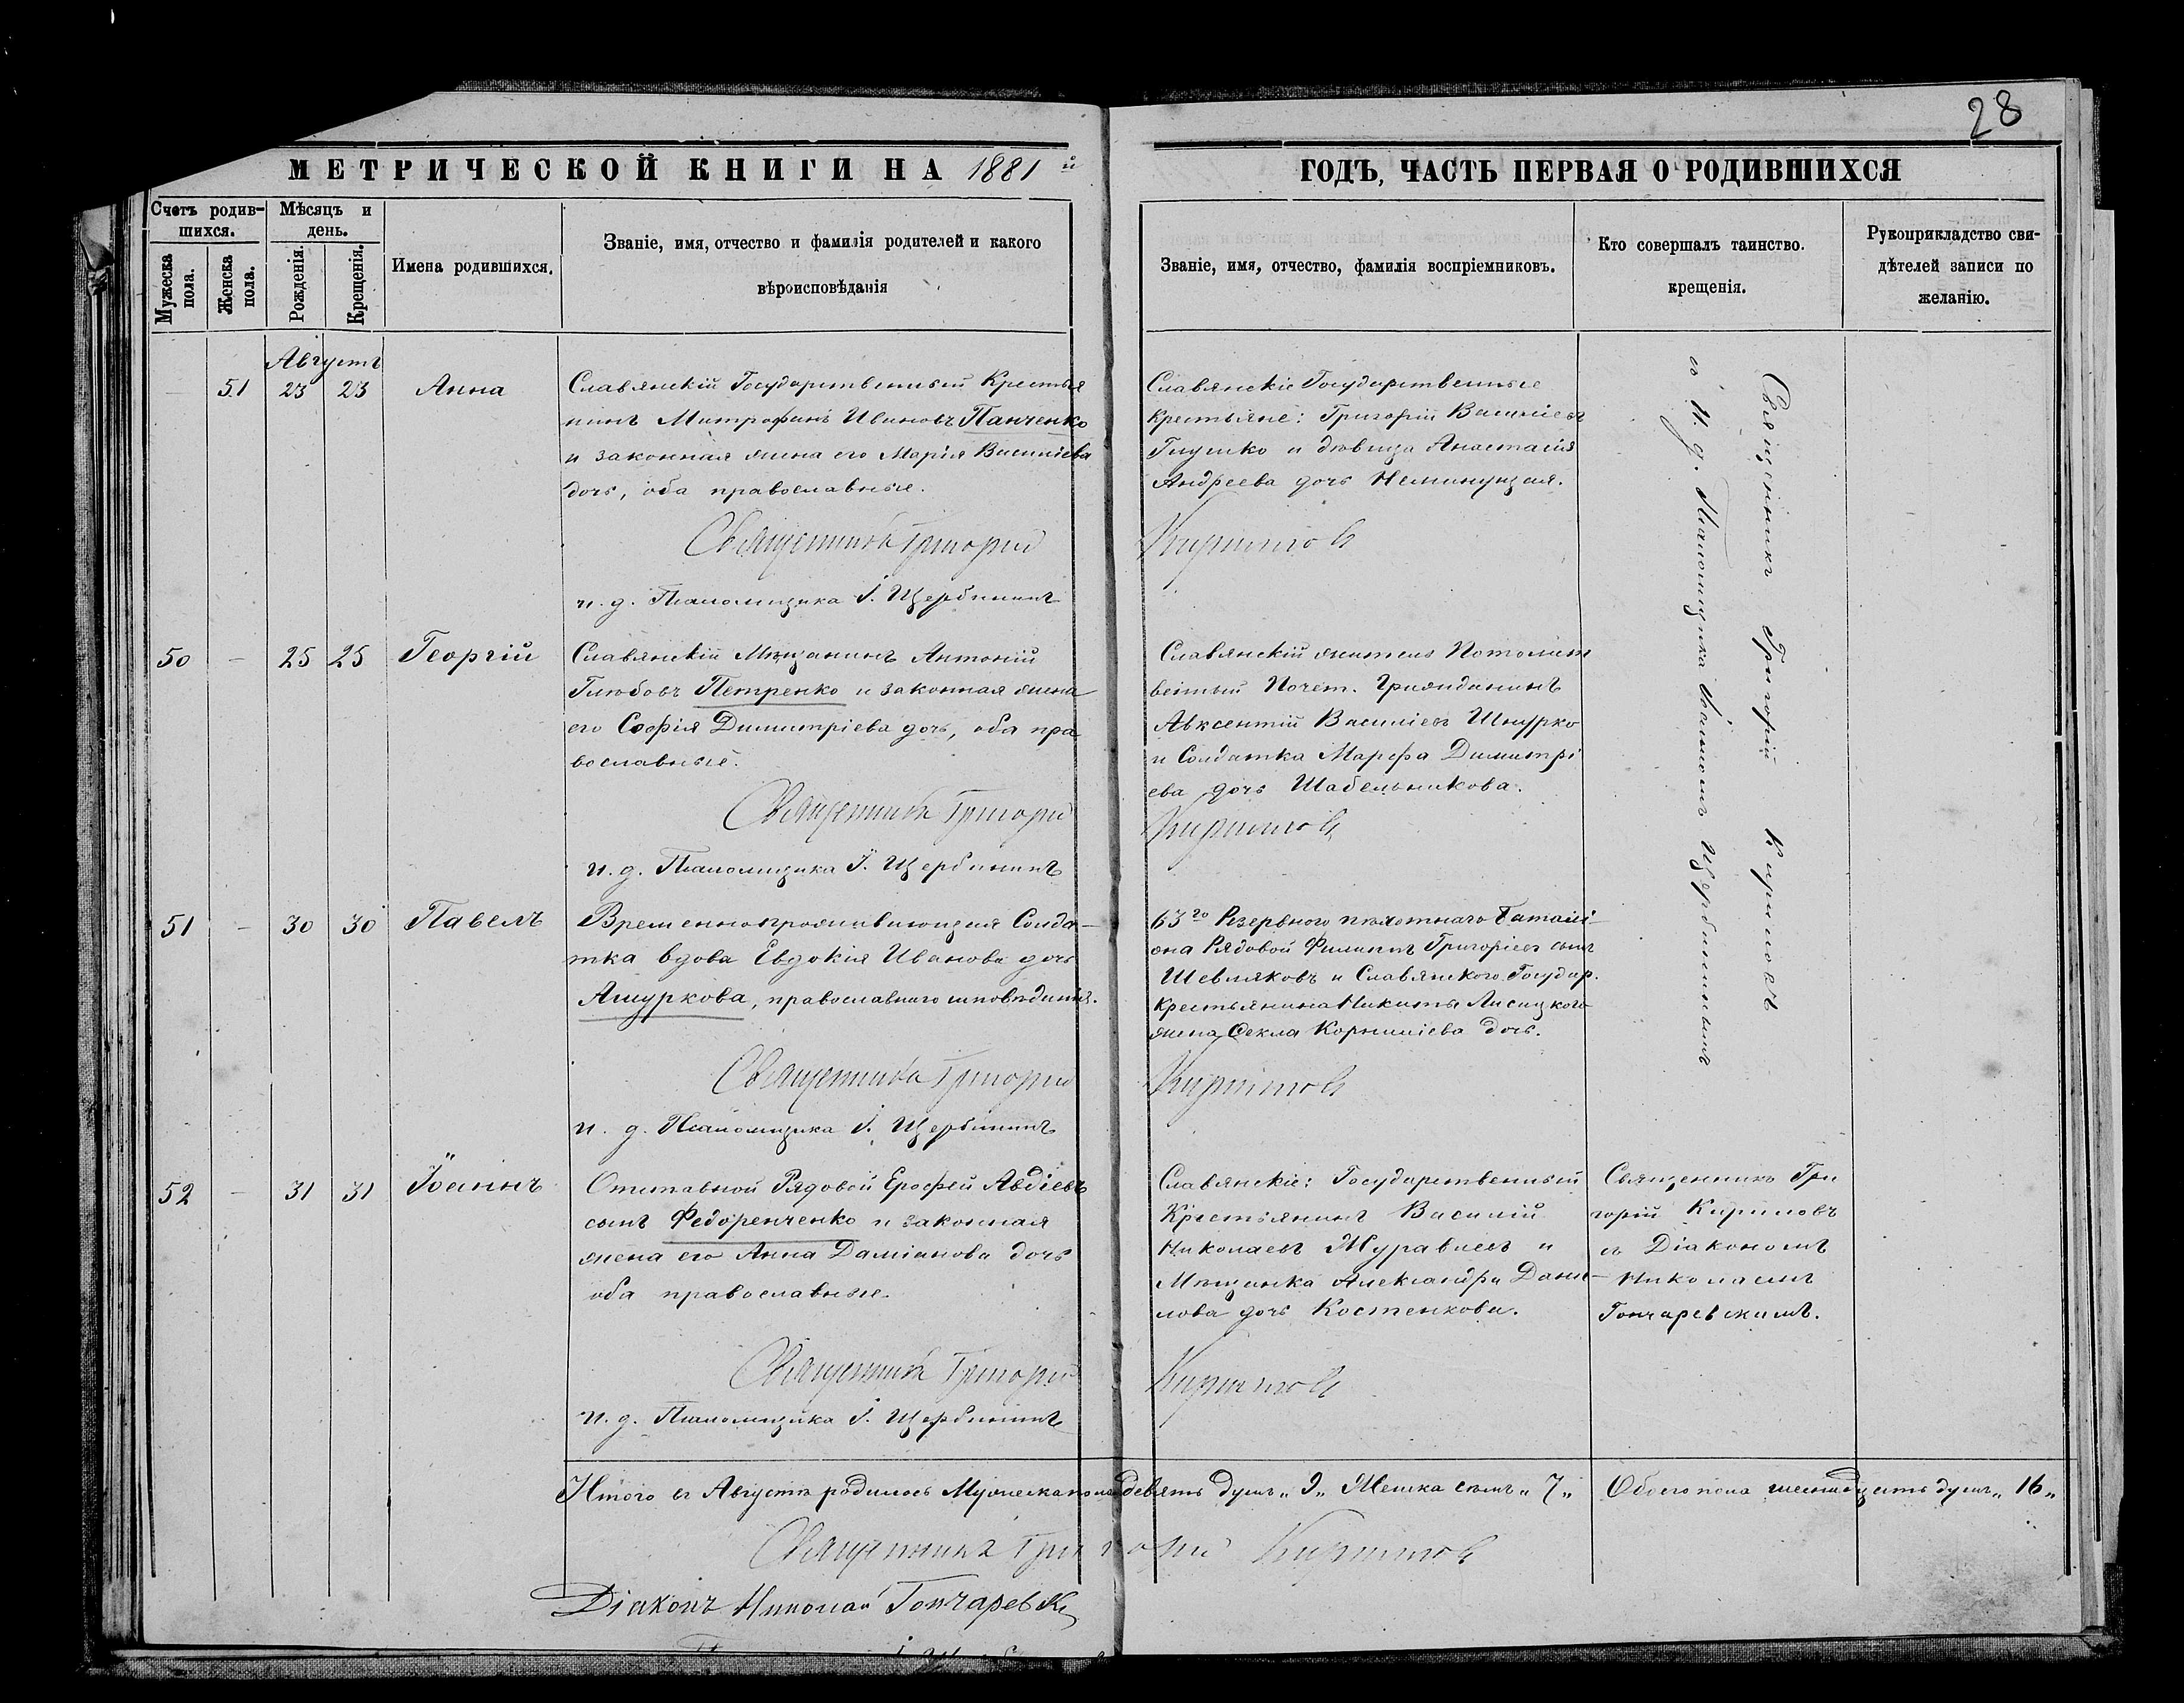 28
МЕТРИЧЕСКОЙ КНИГИ НА 1881 й
ГОДЪ, ЧАСТЬ ПЕРВАЯ О РОДИВШИХСЯ
Счетъ родив-
шихся.
Мѣсяцъ и
день.
Мужеска пола.
Женска пола.
Рожденія.
Крещенія.
Имена родившихся.
Званіе, имя, отчество и фамилія родителей и какого
вѣроисповѣданія
Званіе, имя, отчество, фамилія воспріемниковъ.
Кто совершалъ таинство.
крещенія.
Рукоприкладство сви-
дѣтелей записи по
желанію.
Августъ
— 51 23 23 Анна
Славянскій Государственный Крестья
нинъ Митрофанъ Ивановъ Панченко
и законная жена его Марія Василіева
дочь, оба православные.
Священникъ Григорій
и. д. Псаломщика І. Щербининъ
Славянскіе Государственные
крестьяне: Григорій Василіевъ
Глушко и дѣвица Анастасія
Андреева дочь Неминущая.
Кириловъ
Священникъ Григорій Кириловъ
съ И. д. Псаломщика Іоанномъ Щербининымъ
50 — 25 25 Георгій
Славянскій Мѣщанинъ Антоній
Глѣбовъ Петренко и законная жена
его Софія Димитріева дочь, оба пра
вославные.
Священникъ Григорій
и. д. Псаломщика І. Щербининъ
Славянскій житель Потомст
венный Почет. Гражданинъ
Авксентій Василіевъ Шнурко
и Солдатка Марфа Димитрі
ева дочь Шабельникова.
Кириловъ
51 — 30 30 Павелъ
Временнопроживающая Солда-
тка вдова Евдокія Иванова дочь
Ашуркова, православнаго исповѣданія.
Священникъ Григорій
и. д. Псаломщика І. Щербининъ
63го Резервного пѣхотнаго Баталі
она Рядовой Филиппъ Григоріевъ сынъ
Шевляковъ и Славянского Государ.
крестьянина Никиты Лисицкого
жена Ѳекла Корниліева дочь.
Кириловъ
52 — 31 31 Іоаннъ
Отставной Рядовой Ерофей Авдіевъ
сынъ Федоренченко и законная
жена его Анна Даміанова дочь
оба православные.
Священникъ Григорій
и. д. Псаломщика І. Щербининъ
Славянскіе: Государственный
Крестьянинъ Василій
Николаевъ Журавлевъ и
Мѣщанка Александра Дани-
лова дочь Костенкова.
Кириловъ
Священникъ Гри
горій Кириловъ
съ Діакономъ
Николаемъ
Гончаревскимъ.
Итого въ Августѣ родилось Мужеска пола девять душъ „9„ Женска семь „7„ Обоего пола шестнадцать душъ „16„
Священникъ Григорій Кириловъ
Діаконъ Николай Гончаревскі